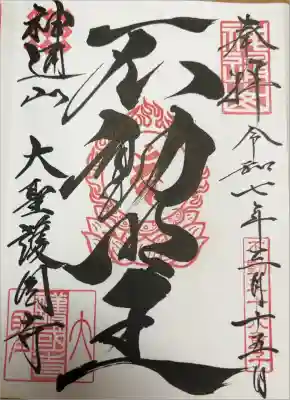 奉拝 令和七年三月十五日
不動明王
神通山
大聖護国寺